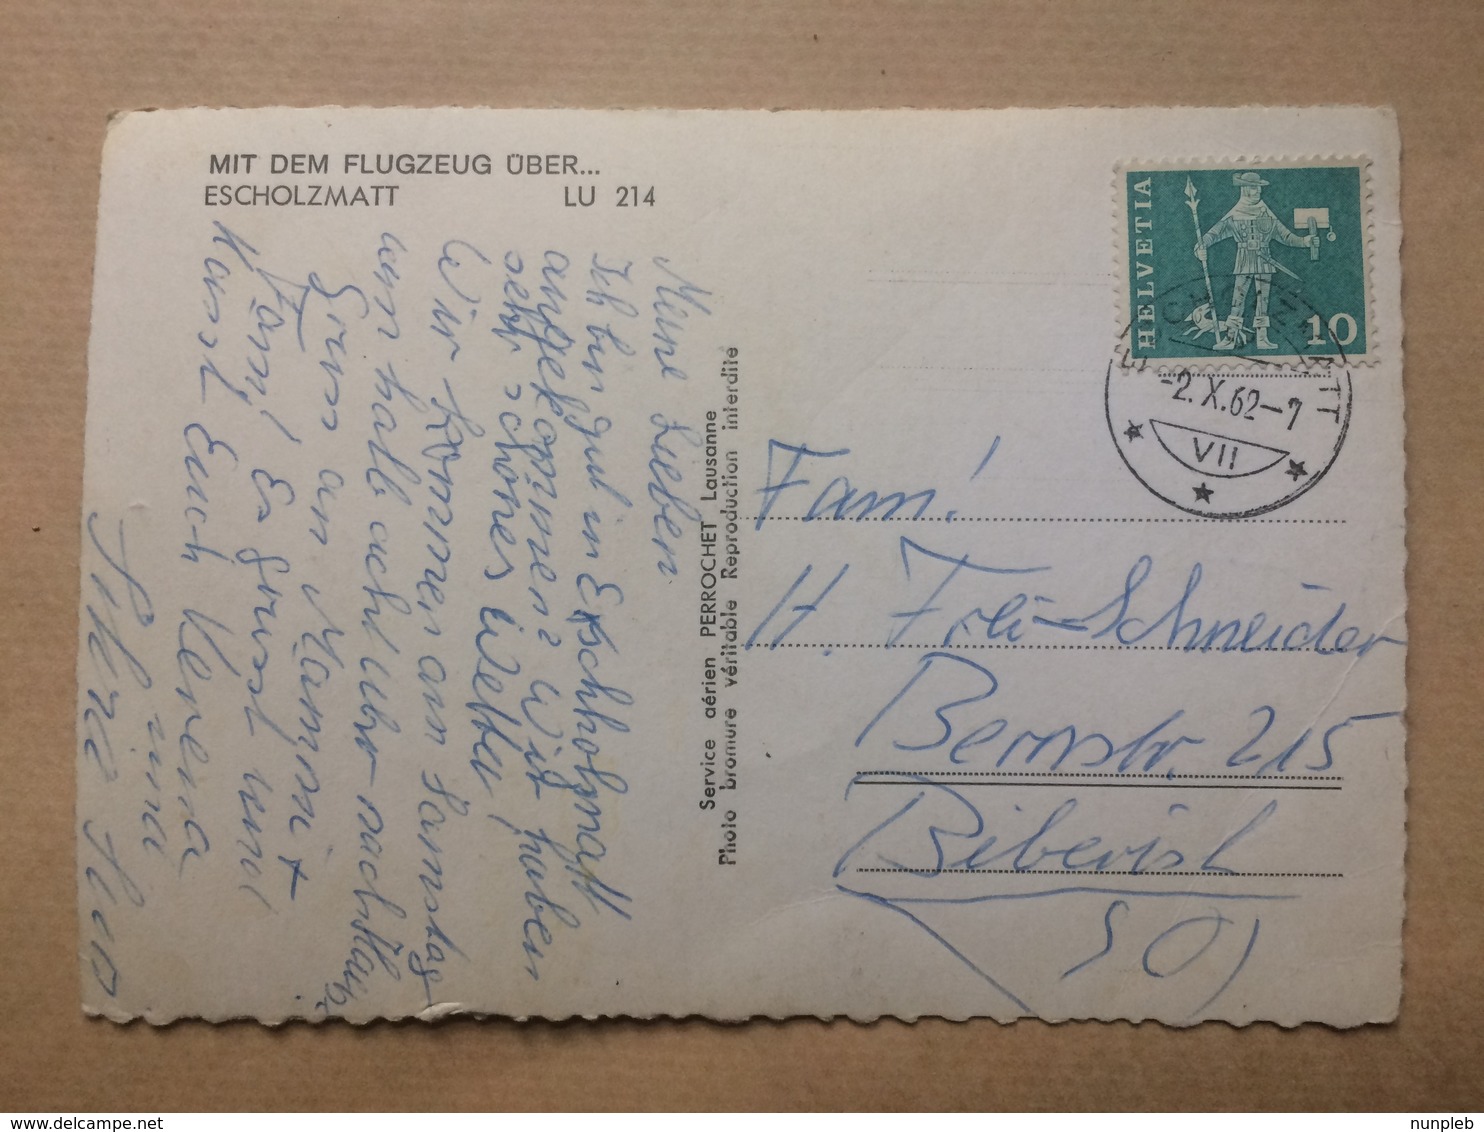 MIT DEM FLUGZEUG ÜBER...
ESCHOLZMATT LU 214
Meine Lieben
Ich bin gut in Eschholzmatt
angekommen? Wir haben
sehr schönes Wetter,
Wir kommen am Samstag
um halb acht Uhr nach Hause
Gruss an Mammi +
Es grüsst und
küsst Euch Verena
Service aérien PERROCHET Lausanne
Photo bromure véritable Reproduction interdite
HELVETIA
10
-2.X.62-7
VII
Fam!
H. Frei-Schneider
Bernstr. 215
Biberist
SO)
delcampe.net
nunpleb